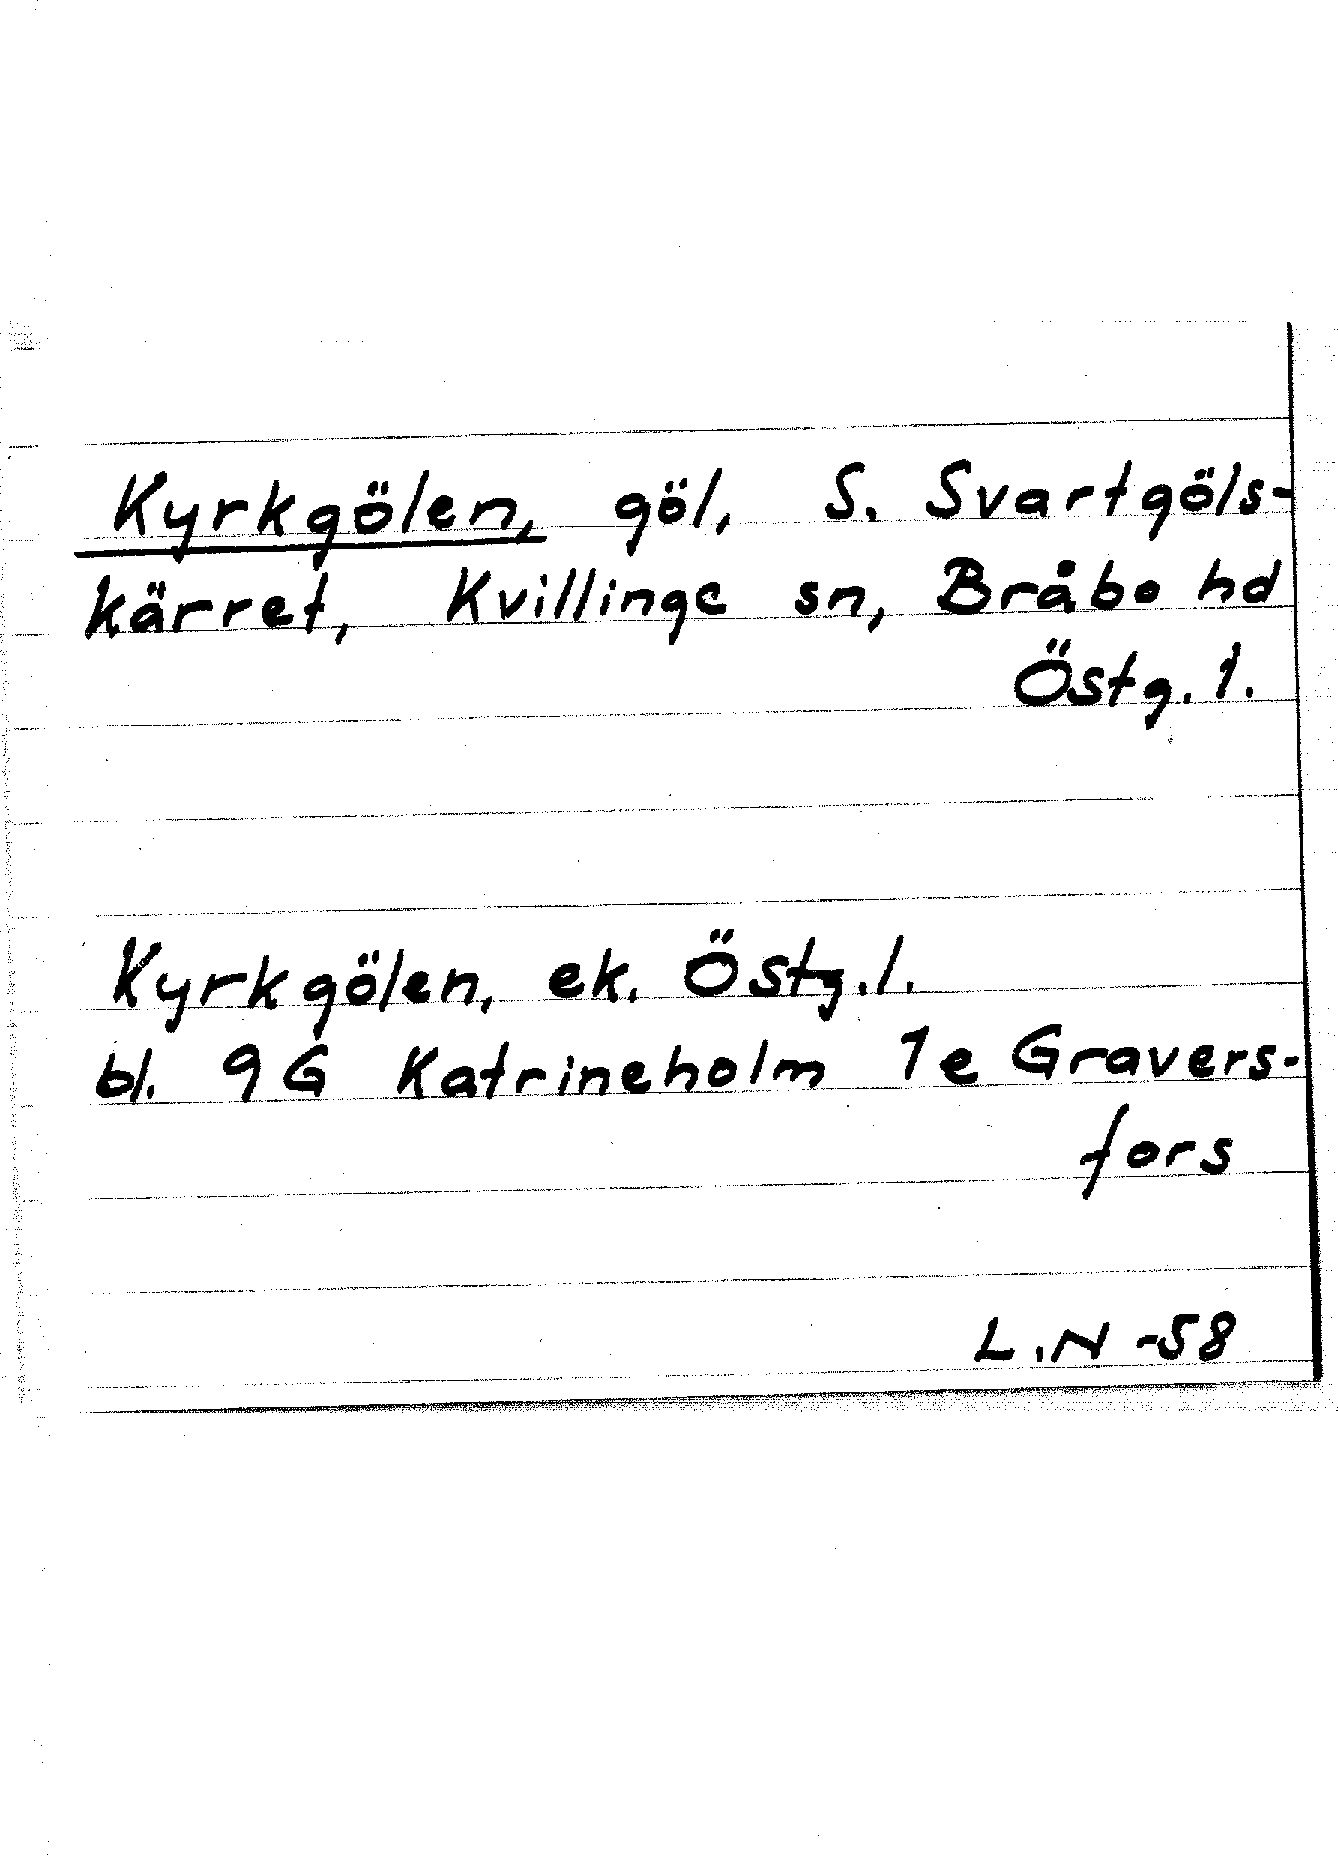 Kyrkgölen, göl, S. Svartgöls-
kärret, Kvillinge sn, Bråbo hd
Östg. l.
Kyrkgölen, ek. Östg. l.
bl. 9G Katrineholm 1e Gravers-
fors
L.N -58